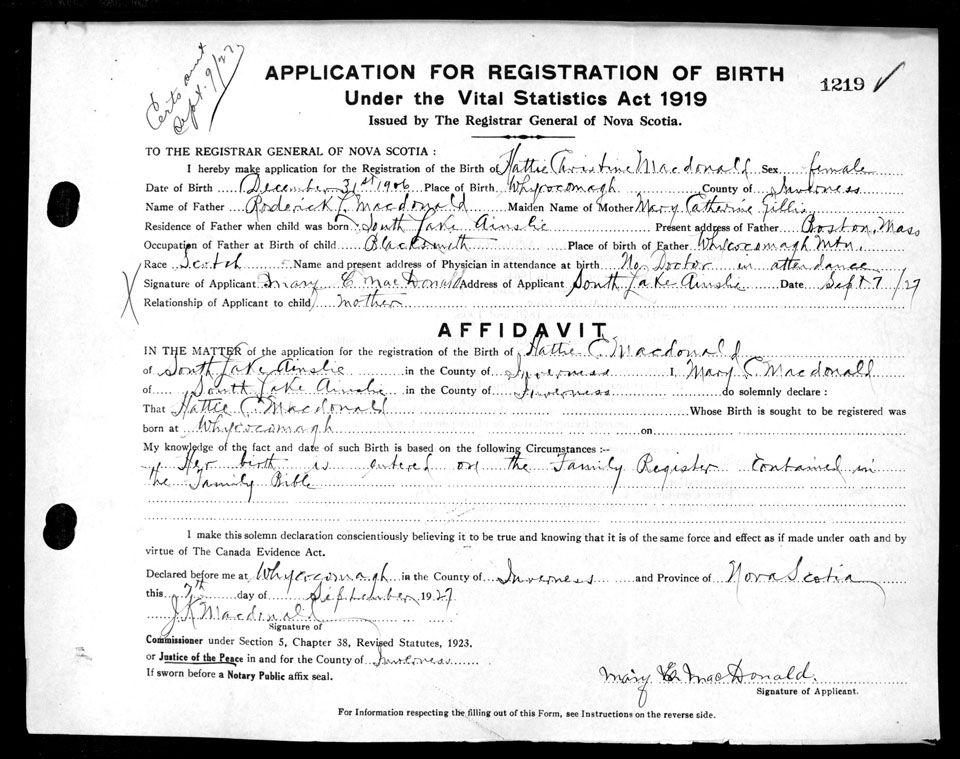 Certs sent
Sept. 9/27
APPLICATION FOR REGISTRATION OF BIRTH
Under the Vital Statistics Act 1919
1219 ✓
Issued by The Registrar General of Nova Scotia.
TO THE REGISTRAR GENERAL OF NOVA SCOTIA :
I hereby make application for the Registration of the Birth of Hattie Christine Macdonald Sex female
Date of Birth December 31st 1906 Place of Birth Whycocomagh County of Inverness
Name of Father Roderick L Macdonald Maiden Name of Mother Mary Catherine Gillis
Residence of Father when child was born South Lake Ainslie Present address of Father Boston, Mass
Occupation of Father at Birth of child Blacksmith Place of birth of Father Whycocomagh Mtn.
Race Scotch Name and present address of Physician in attendance at birth No Doctor in attendance
X Signature of Applicant Mary C MacDonald Address of Applicant South Lake Ainslie Date Sept 7/27
Relationship of Applicant to child mother
AFFIDAVIT
IN THE MATTER of the application for the registration of the Birth of Hattie C. Macdonald
of South Lake Ainslie in the County of Inverness I, Mary C. Macdonald
of South Lake Ainslie in the County of Inverness do solemnly declare :
That Hattie C. Macdonald Whose Birth is sought to be registered was
born at Whycocomagh on
My knowledge of the fact and date of such Birth is based on the following Circumstances :-
Her birth is entered on the Family Register contained in
the Family Bible
I make this solemn declaration conscientiously believing it to be true and knowing that it is of the same force and effect as if made under oath and by
virtue of The Canada Evidence Act.
Declared before me at Whycocomagh in the County of Inverness and Province of Nova Scotia
this 7th day of September 1927
J K Macdonald
Signature of
Commissioner under Section 5, Chapter 38, Revised Statutes, 1923.
or Justice of the Peace in and for the County of Inverness
If sworn before a Notary Public affix seal.
Mary C. MacDonald.
Signature of Applicant.
For Information respecting the filling out of this Form, see Instructions on the reverse side.